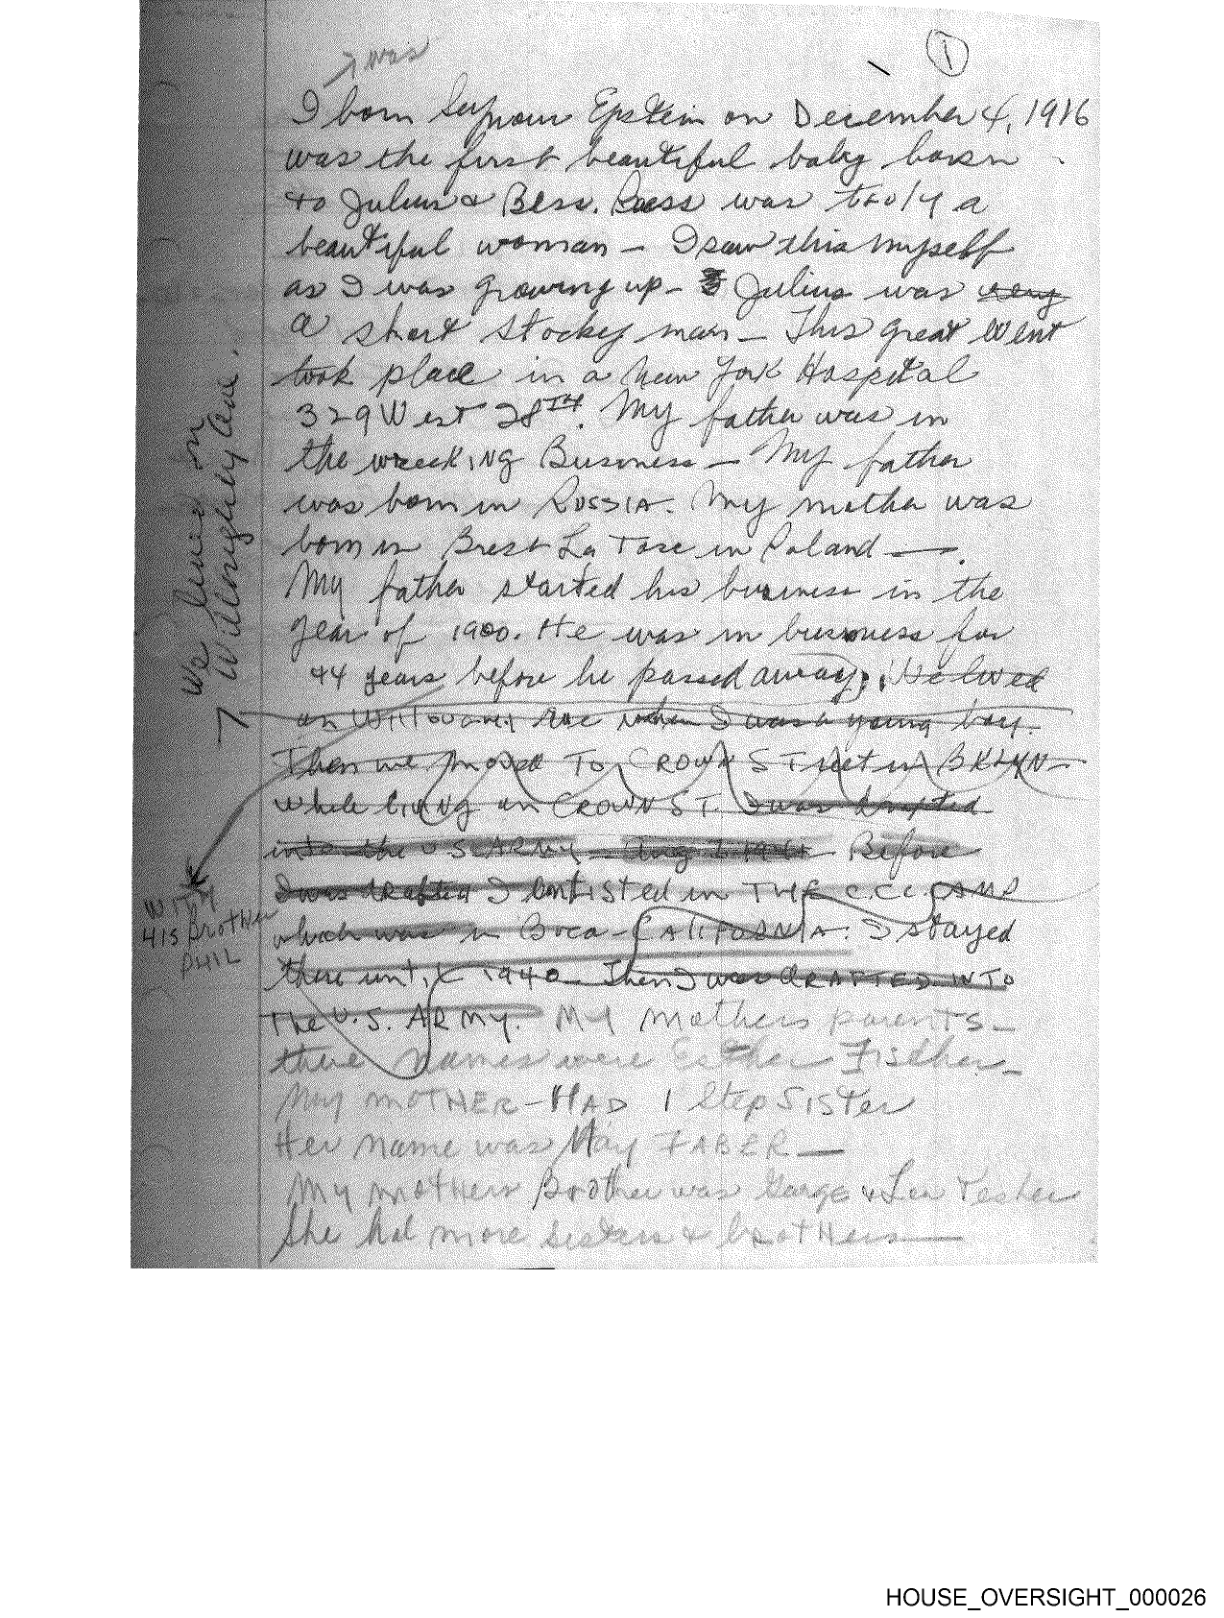 1
was
I born Seymour Epstein on December 4, 1916
was the first beautiful baby born
to Julius & Bess. Bess was truly a
beautiful woman - I saw this myself
as I was growing up - Julius was very
a short stocky man - This great event
took place in a New York Hospital
329 West 28TH. My father was in
the wrecking Business - My father
was born in RUSSIA. My mother was
born in Brest La Tosc in Poland -
My father started his business in the
year of 1900. He was in business for
44 years before he passed away. He lived
on Ave when I was a young boy.
Then we moved TO CROWN STreet in BKLYN -
while living on CROWN ST. I was drafted
into the U.S. ARMY - Aug 1941 Before
I was drafted I entisted in THE C.C.C. CAMP
which was in Boca - CALIFORNIA. I stayed
there until 1940 - Then I was DRAFTED INTO
The U.S. ARMY. My mothers parents -
there names were Esther Fisher -
My MOTHER - HAD 1 Step SISTer
Her Name was May FABER -
My mothers Brother was George & Leu
She had more sisters & brothers -
We lived on
Willoughby Ave.
WITH
HIS Brother
PHIL
HOUSE_OVERSIGHT_000026